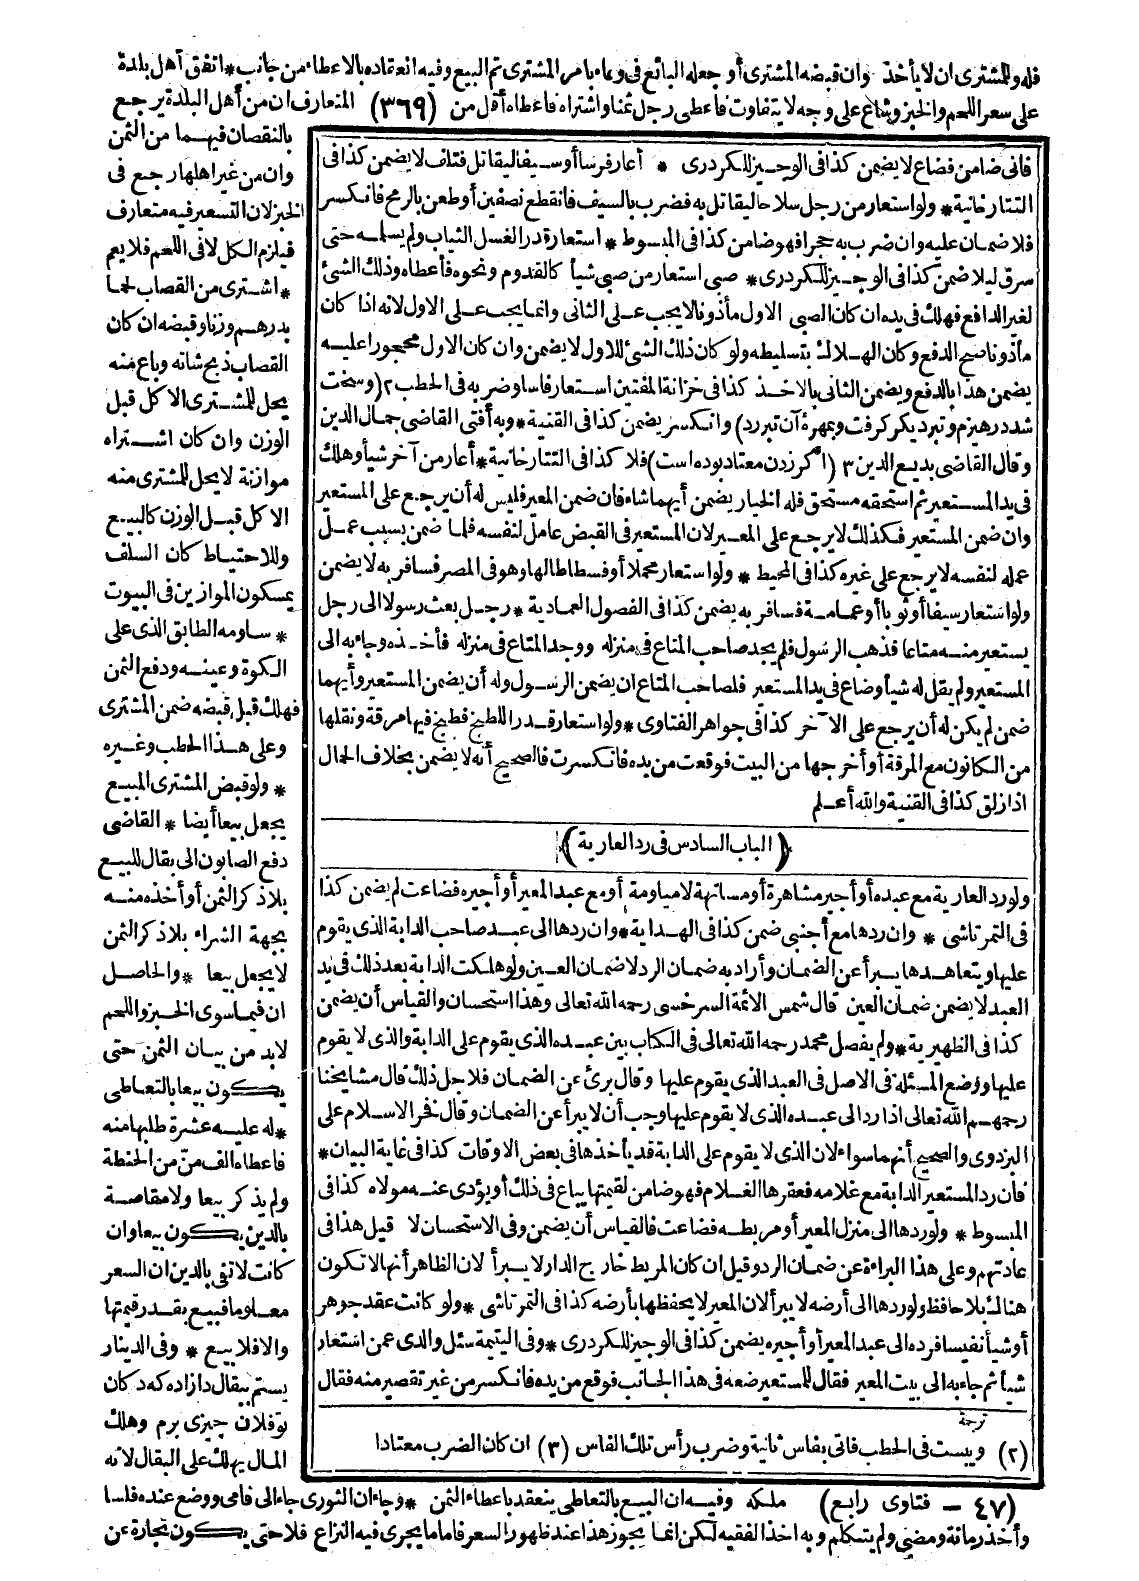 فله وللمشترى ان لا يأخذ وان قبضه المشترى أو جعله البائع فى وعاء بامر المشترى تم البيع وفيه انعقاده بالاعطاء من جانب * اتفق آهل بلدة
على سعر اللحم والخبز وشاع على وجه لا يتفاوت فاعطى رجل ثمنا واشتراه فاعطاه أقل من (٣٦٩) المتعارف ان من أهل البلدة يرجع
بالنقصان فيهما من الثمن
وان من غير اهلها رجع فى
الخبز لان التسعير فيه متعارف
فيلزم الكل لا فى اللحم فلا يعم
* اشترى من القصاب لحما
بدرهم وزنا وقبضه ان كان
القصاب ذبح شاته وباع منه
يحل للمشترى الا كل قبل
الوزن وان كان اشتراه
موازنة لا يحل للمشترى منه
الاكل قبل الوزن كالبيع
وللاحتياط كان السلف
يمسكون الموازين فى البيوت
* ساومه الطابق الذى على
الكوة وعينه ودفع الثمن
فهلك قبل قبضه ضمن المشترى
وعلى هذا الحطب وغيره
* ولو قبض المشترى المبيع
يجعل بيعا أيضا * القاضى
دفع الصابون الى بقال للبيع
بلا ذكر الثمن أو أخذه منه
بجهة الشراء بلا ذكر الثمن
لا يجعل بيعا * والحاصل
ان فيما سوى الخبز واللحم
لابد من بيان الثمن حتى
يكون بيعا بالتعاطى
* له عليه عشرة طلبها منه
فاعطاه الف منّ من الحنطة
ولم يذكر بيعا ولا مقاصة
بالدين يكون بيعا وان
كانت لا تفى بالدين ان السعر
معلوما فبيع بقدر قيمتها
والا فلا بيع * وفى الدينار
يستم ببقال دازاده كه دكان
بوفلان چيزى برم وهلك
المال يهلك على البقال لانه
قانى ضامن فضاع لا يضمن كذا فى الوجيز للكردرى * أعار فرسا أو سيفا ليقاتل فتلف لا يضمن كذا فى
التتارخانية * ولو استعار من رجل سلاحا ليقاتل به فضرب بالسيف فانقطع نصفين أو طعن بالرمح فانكسر
فلا ضمان عليه وان ضرب به حجرا فهو ضامن كذا فى المبسوط * استعار قدر الغسل الثياب ولم يسلمه حتى
سرق ليلا ضمن كذا فى الوجيز للكردرى * صبى استعار من صبى شيأ كالقدوم ونحوه فأعطاه وذلك الشئ
لغير الدافع فهلك فى يده ان كان الصبى الاول مأذونا لا يجب على الثانى وانما يجب على الاول لانه اذا كان
مأذونا صح الدفع وكان الهلاك بتسليطه ولو كان ذلك الشئ للاول لا يضمن وان كان الاول محجورا عليه
يضمن هذا بالدفع ويضمن الثانى بالاخذ كذا فى خزانة المفتين استعار فاسا وضربه فى الحطب ٢ (وسخت
شد در هيزم وتبر ديكر كرفت وبمهرهٔ آن تبر زد) وانكسر يضمن كذا فى القنية * وبه أفتى القاضى جمال الدين
وقال القاضى بديع الدين ٣ (اكر زدن معتاد بوده است) فلا كذا فى التتارخانية * أعار من آخر شيأ وهلك
فى يد المستعير ثم استحقه مستحق فله الخيار يضمن أيهما شاء فان ضمن المعير فليس له أن يرجع على المستعير
وان ضمن المستعير فكذلك لا يرجع على المعير لان المستعير فى القبض عامل لنفسه فلما ضمن بسبب عمل
عمله لنفسه لا يرجع على غيره كذا فى المحيط * ولو استعار محملا أو فسطاطا لها وهو فى المصر فسافر به لا يضمن
ولو استعار سيفا أو ثوبا أو عمامة فسافر به يضمن كذا فى الفصول العمادية * رجل بعث رسولا الى رجل
يستعير منه متاعا فذهب الرسول فلم يجد صاحب المتاع فى منزله ووجد المتاع فى منزله فأخذه وجاء به الى
المستعير ولم يقل له شيأ وضاع فى يد المستعير فلصاحب المتاع ان يضمن الرسول وله أن يضمن المستعير وأيهما
ضمن لم يكن له أن يرجع على الآخر كذا فى جواهر الفتاوى * ولو استعار قدرا للطبخ فطبخ فيها مرقة ونقلها
من الكانون مع المرقة أو أخرجها من البيت فوقعت من يده فانكسرت فالصحيح أنه لا يضمن بخلاف الحال
اذا زلق كذا فى القنية والله أعلم
(الباب السادس فى رد العارية)
ولو رد العارية مع عبده أو أجير مشاهرة أو مسانهة لا مياومة أو مع عبد المعير أو أجيره فضاعت لم يضمن كذا
فى التمرتاشى * وان ردها مع أجنبى ضمن كذا فى الهداية * وان ردها الى عبد صاحب الدابة الذى يقوم
عليها ويتعاهدها يبرأ عن الضمان وأراد به ضمان الرد لا ضمان العين ولو هلكت الدابة بعد ذلك فى يد
العبد لا يضمن ضمان العين قال شمس الائمة السرخسى رحمه الله تعالى وهذا استحسان والقياس أن يضمن
كذا فى الظهيرية * ولم يفصل محمد رحمه الله تعالى فى الكتاب بين عبده الذى يقوم على الدابة والذى لا يقوم
عليها ووضع المسئلة فى الاصل فى العبد الذى يقوم عليها وقال برئ عن الضمان فلاجل ذلك قال مشايخنا
رحمهم الله تعالى اذا رد الى عبده الذى لا يقوم عليها وجب أن لا يبرأ عن الضمان وقال فخر الاسلام على
البزدوى والصحيح أنهما سواء لان الذى لا يقوم على الدابة قد يأخذها فى بعض الاوقات كذا فى غاية البيان *
فان رد المستعير الدابة مع غلامه فعقرها الغلام فهو ضامن لقيمتها يباع فى ذلك أو يؤدى عنه مولاه كذا فى
المبسوط * ولو ردها الى منزل المعير أو مربطه فضاعت فالقياس أن يضمن وفى الاستحسان لا قيل هذا فى
عادتهم وعلى هذا البراءة عن ضمان الرد وقيل ان كان المربط خارج الدار لا يبرأ لان الظاهر أنها لا تكون
هنالك بلا حافظ ولو ردها الى أرضه لا يبرأ لان المعير لا يحفظها بأرضه كذا فى التمرتاشى * ولو كانت عقد جوهر
أو شيأ نفيسا فرده الى عبد المعير أو أجيره يضمن كذا فى الوجيز للكردرى * وفى اليتيمة سئل والدى عمن استعار
شيأ ثم جاء به الى بيت المعير فقال للمستعير ضعه فى هذا الجانب فوقع من يده فانكسر من غير تقصير منه فقال
ترجمة
(٢) ويبست فى الحطب فاتى بفاس ثانية وضرب رأس تلك الفاس (٣) ان كان الضرب معتادا
(٤٧ - فتاوى رابع) ملكه وفيه ان البيع بالتعاطى ينعقد باعطاء الثمن * وجاء ان الثورى جاء الى فامى ووضع عنده فلسا
وأخذ رمانة ومضى ولم يتكلم وبه اخذ الفقيه لكن انما يجوز هذا عند ظهور السعر فاما ما يجرى فيه النزاع فلا حتى يكون تجارة عن